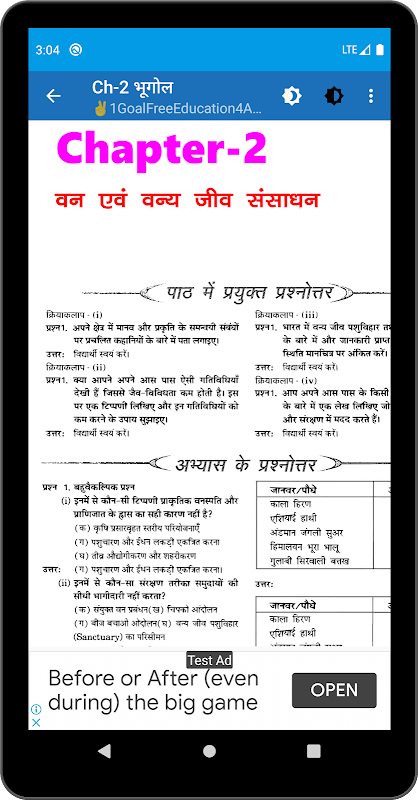 3:04
LTE
Ch-2 भूगोल
✌1GoalFreeEducation4A...
Chapter-2
वन एवं वन्य जीव संसाधन
पाठ में प्रयुक्त प्रश्नोत्तर
क्रियाकलाप - (i)
प्रश्न1. अपने क्षेत्र में मानव और प्रकृति के समन्वयी संबंधों
पर प्रचलित कहानियों के बारे में पता लगाइए।
उत्तर: विद्यार्थी स्वयं करें।
क्रियाकलाप - (ii)
प्रश्न1. क्या आपने अपने आस पास ऐसी गतिविधियाँ
देखी हैं जिससे जैव-विविधता कम होती है। इस
पर एक टिप्पणी लिखिए और इन गतिविधियों को
कम करने के उपाय सुझाइए।
उत्तर: विद्यार्थी स्वयं करें।
क्रियाकलाप - (iii)
प्रश्न1. भारत में वन्य जीव पशुविहार
के बारे में और जानकारी प्राप्त
स्थिति मानचित्र पर अंकित करें।
उत्तर: विद्यार्थी स्वयं करें।
क्रियाकलाप - (iv)
प्रश्न1. आप अपने आस पास के किसी
के बारे में एक लेख लिखिए जो
और संरक्षण में मदद करते हैं।
उत्तर: विद्यार्थी स्वयं करें।
अभ्यास के प्रश्नोत्तर
प्रश्न 1. बहुवैकल्पिक प्रश्न
(i) इनमें से कौन-सी टिप्पणी प्राकृतिक वनस्पति और
प्राणिजात के ह्रास का सही कारण नहीं है?
(क) कृषि प्रसारवृहत स्तरीय परियोजनाएँ
(ग) पशुचारण और ईंधन लकड़ी एकत्रित करना
(घ) तीव्र औद्योगीकरण और शहरीकरण
उत्तर: (ग) पशुचारण और ईंधन लकड़ी एकत्रित करना।
(ii) इनमें से कौन-सा संरक्षण तरीका समुदायों की
सीधी भागीदारी नहीं करता?
(क) संयुक्त वन प्रबंधन(ख) चिपको आंदोलन
(ग) बीज बचाओ ओदोलन(घ) वन्य जीव पशुविहार
(Sanctuary) का परिसीमन
जानवर/पौधे
काला हिरण
एशियाई हाथी
अंडमान जंगली सुअर
हिमालयन भूरा भालू
गुलाबी सिरवाली बत्तख
उत्तर:
जानवर/पौधे
काला हिरण
एशियाई हाथी
Test Ad
Before or After (even
during) the big game
OPEN